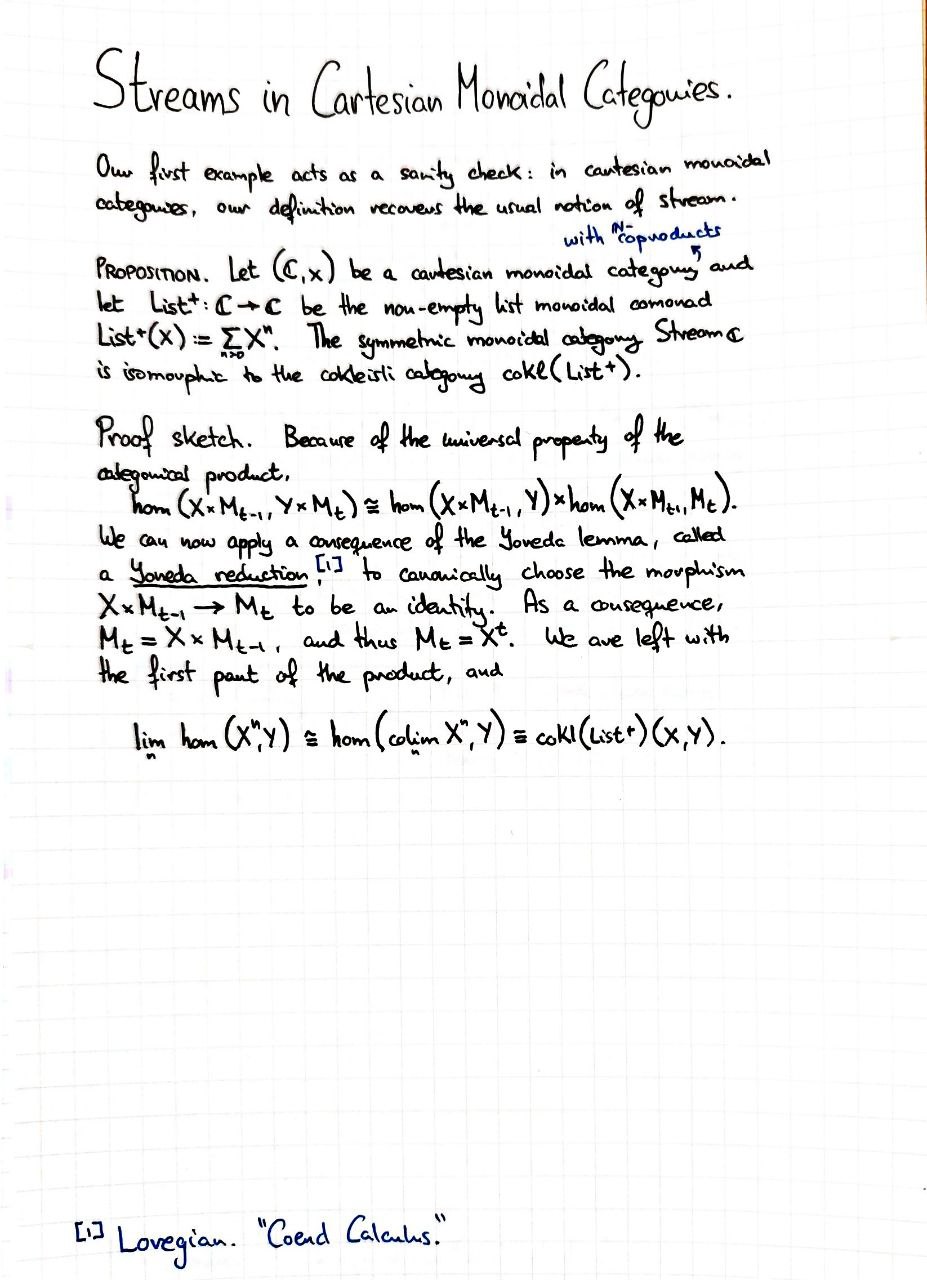 Streams in Cartesian Monoidal Categories.
Our first example acts as a sanity check: in cartesian monoidal
categories, our definition recovers the usual notion of stream.
with ℕ-coproducts
PROPOSITION. Let (ℂ,×) be a cartesian monoidal category and
let List⁺: ℂ→ℂ be the non-empty list monoidal comonad
List⁺(X) := Σₙ>₀ Xⁿ. The symmetric monoidal category Streamℂ
is isomorphic to the cokleisli category cokl(List⁺).
Proof sketch. Because of the universal property of the
categorical product,
hom (X×Mₜ₋₁, Y×Mₜ) ≅ hom (X×Mₜ₋₁, Y)×hom (X×Mₜ₋₁, Mₜ).
We can now apply a consequence of the Yoneda lemma, called
a Yoneda reduction,[1] to canonically choose the morphism
X×Mₜ₋₁ → Mₜ to be an identity. As a consequence,
Mₜ = X × Mₜ₋₁, and thus Mₜ = Xᵗ. We are left with
the first part of the product, and
limₙ hom (Xⁿ,Y) ≅ hom (colimₙ Xⁿ, Y) ≅ cokl(List⁺)(X,Y).
[1] Loregian. "Coend Calculus."